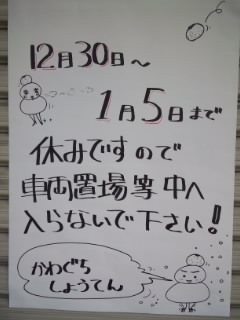 12月30日〜
1月5日まで
休みですので
車両置場等中へ
入らないで下さい!
かわぐち
しょうてん